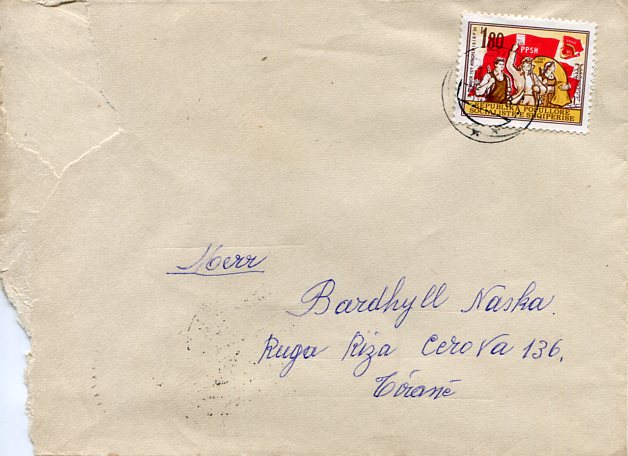 1.80
PPSH
REPUBLIKA POPULLORE
SOCIALISTE E SHQIPERISE
Herr
Bardhyll Naska.
Ruga Riza Cerova 136.
Tiranë